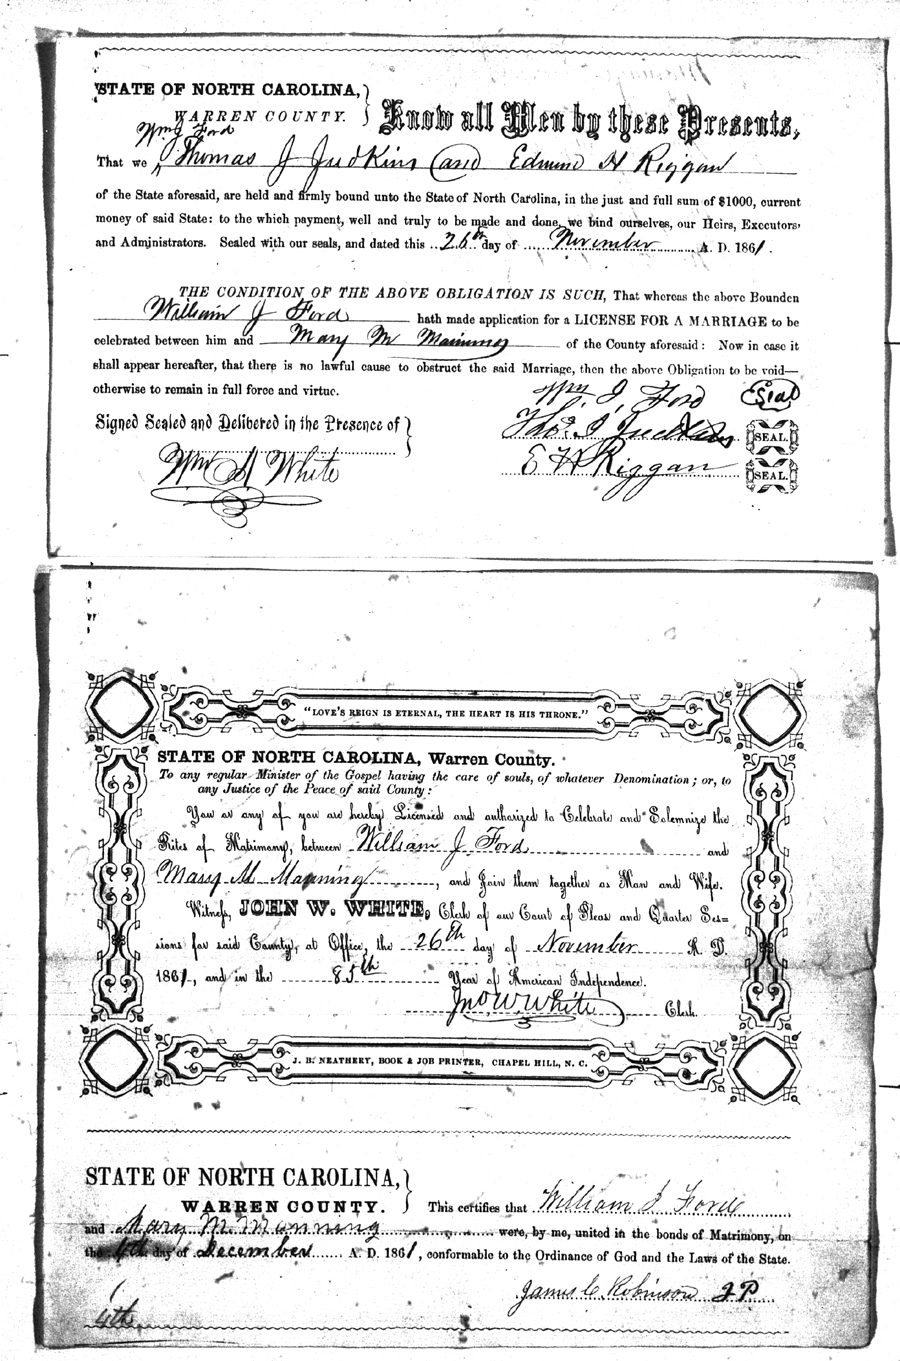 STATE OF NORTH CAROLINA,
WARREN COUNTY.
Know all Men by these Presents,
Wm J Ford
That we Thomas J Judkins and Edmund H Riggan
of the State aforesaid, are held and firmly bound unto the State of North Carolina, in the just and full sum of $1000, current
money of said State: to the which payment, well and truly to be made and done, we bind ourselves, our Heirs, Executors,
and Administrators. Sealed with our seals, and dated this 26th day of November A. D. 1861.
THE CONDITION OF THE ABOVE OBLIGATION IS SUCH, That whereas the above Bounden
William J Ford hath made application for a LICENSE FOR A MARRIAGE to be
celebrated between him and Mary M Manning of the County aforesaid: Now in case it
shall appear hereafter, that there is no lawful cause to obstruct the said Marriage, then the above Obligation to be void—
otherwise to remain in full force and virtue.
Wm J Ford Seal
Signed Sealed and Delivered in the Presence of
Tho. J Judkins SEAL.
Wm A White
E H Riggan SEAL.
"LOVE'S REIGN IS ETERNAL, THE HEART IS HIS THRONE."
STATE OF NORTH CAROLINA, Warren County.
To any regular Minister of the Gospel having the care of souls, of whatever Denomination; or, to
any Justice of the Peace of said County:
You or any of you are hereby Licensed and authorized to Celebrate and Solemnize the
Rites of Matrimony, between William J Ford and
Mary M Manning, and Join them together as Man and Wife.
Witness, JOHN W. WHITE, Clerk of our Court of Pleas and Quarter Ses=
sions for said County, at Office, the 26th day of November A. D.
1861, and in the 85th Year of American Independence.
Jno W White Clerk.
J. B. NEATHERY, BOOK & JOB PRINTER, CHAPEL HILL, N. C.
STATE OF NORTH CAROLINA,
WARREN COUNTY.
This certifies that William J Ford
and Mary M. Manning were, by me, united in the bonds of Matrimony, on
the 4th day of December A. D. 1861, conformable to the Ordinance of God and the Laws of the State.
James C. Robinson J P
4th